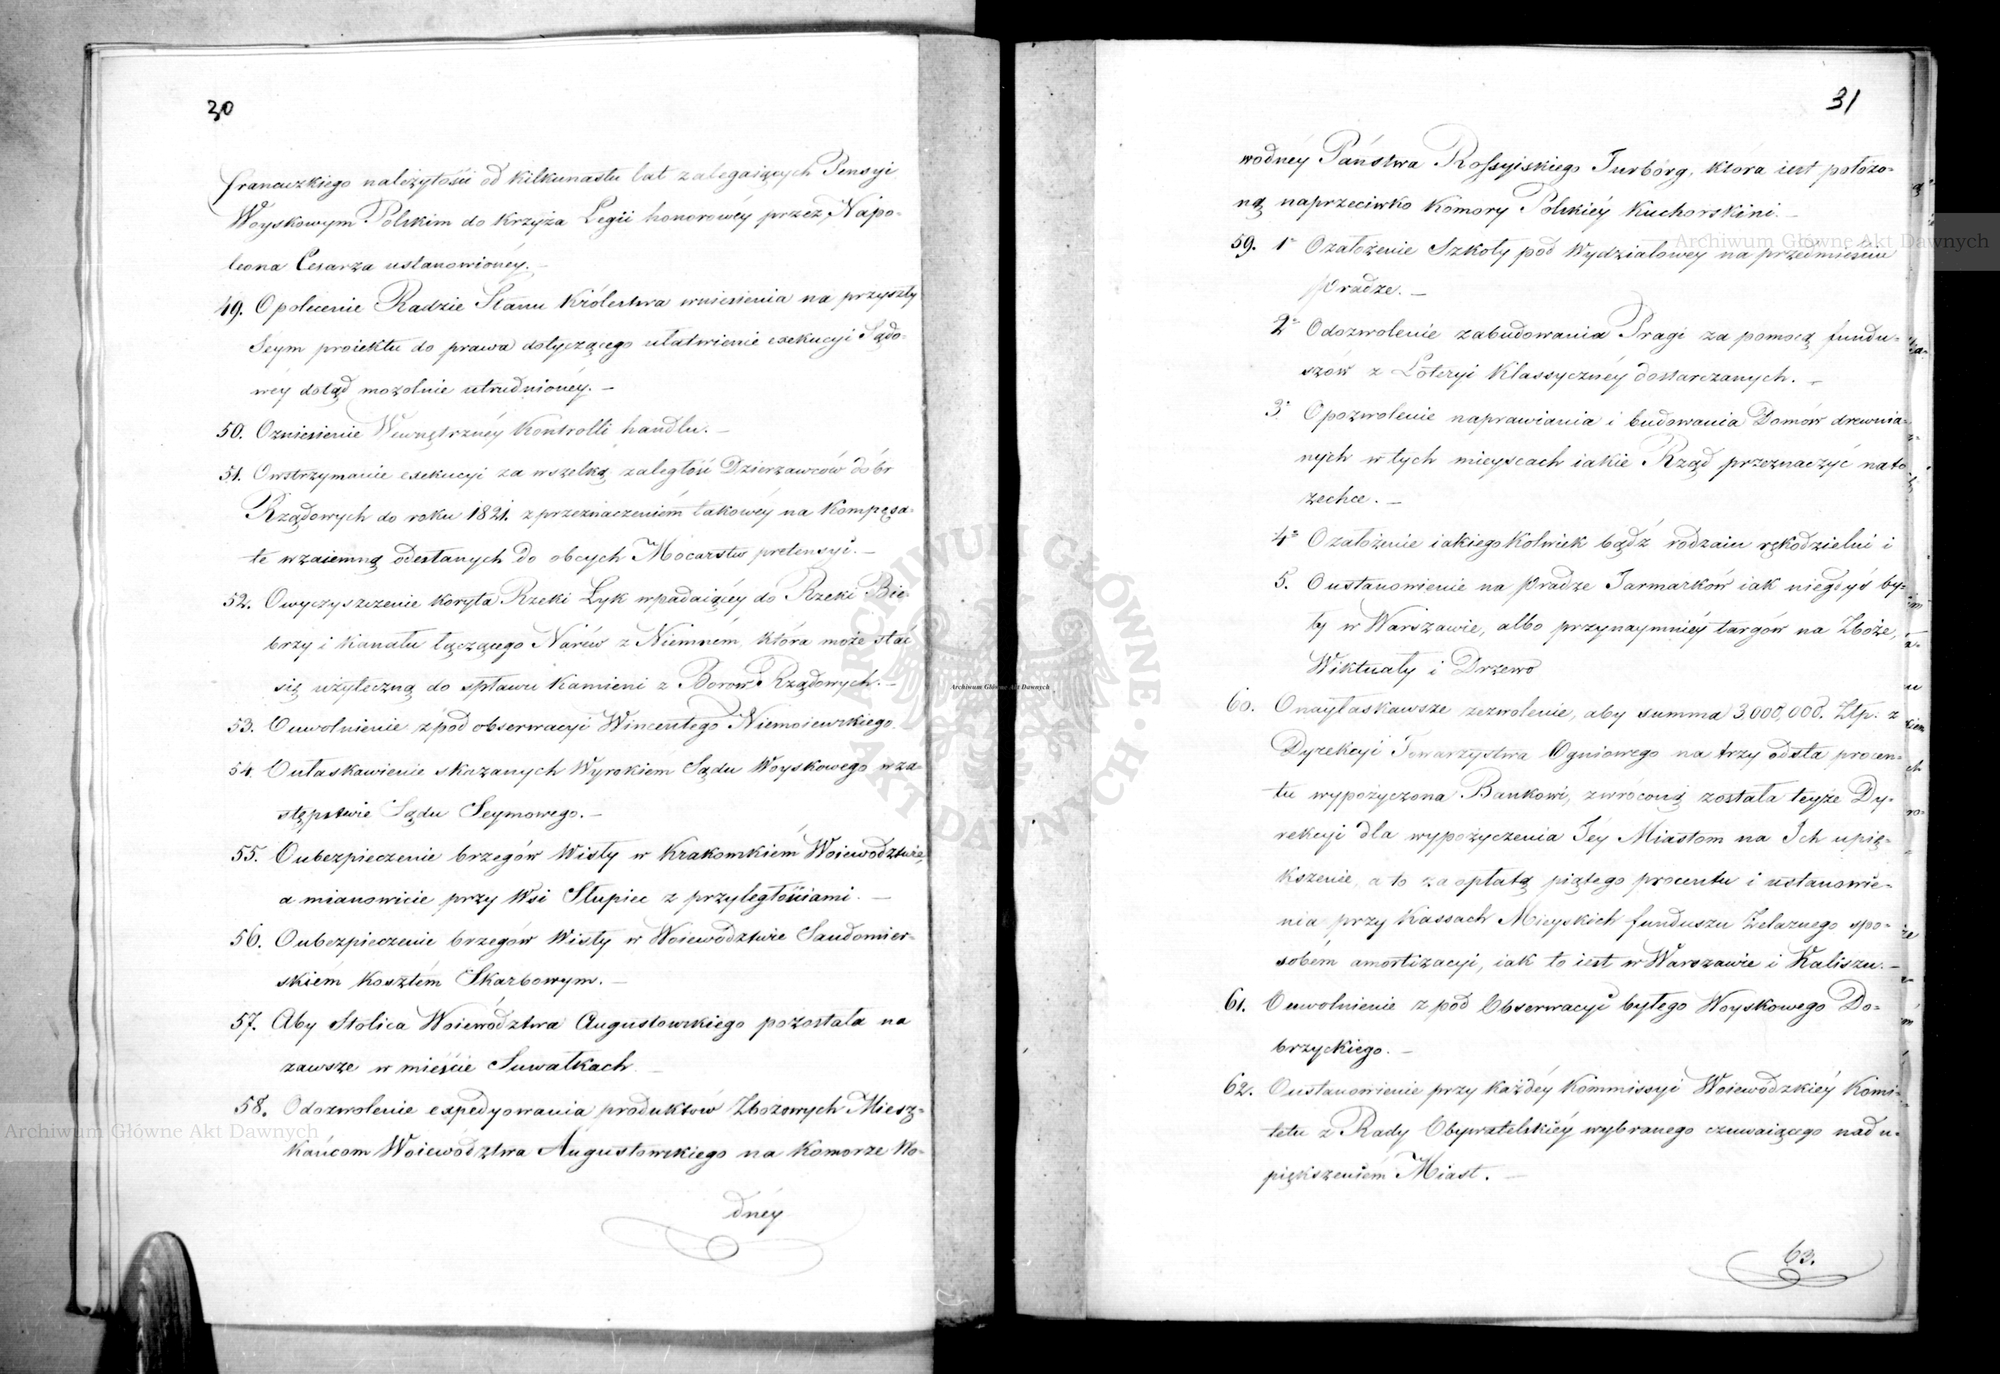 30
francuzkiego należytości od kilkunastu lat zalegaiących Pensyi
Woyskowym Polskim do Krzyża Legii honorowéy przez Napo-
leona Cesarza ustanowionéy. —
49. O polecenie Radzie Stanu Królestwa wniesienia na przyszły
Seym proiektu do prawa dotyczącego ułatwienie exekucyi Sądo-
wéy dotąd mozolnie utrudnionéy. —
50. O zniesienie Wewnętrznéy Kontrolli handlu. —
51. O wstrzymanie exekucyi za wszelką zaległość Dzierzawców dóbr
Rządowych do roku 1821. z przeznaczeniém takowéy na Kompęsa-
te wzaiemną odesłanych do obcych Mocarstw pretensyi. —
52. O wyczyszczenie Koryta Rzeki Łyk wpadaiącéy do Rzeki Bie-
brzy i Kanału łączącego Narew z Niemném, która może stać
się użyteczną do spławu Kamieni z Borów Rządowych. —
53. O uwolnienie z pod obserwacyi Wincentego Niemoiewskiego.
54. O ułaskawienie skazanych Wyrokiem Sądu Woyskowego w za-
stępstwie Sądu Seymowego. —
55. O ubezpieczenie brzegów Wisły w Krakowskiém Woiewództwie,
a mianowicie przy Wsi Słupiec z przyległościami. —
56. O ubezpieczenie brzegów Wisły w Woiewództwie Sandomier-
skiem Kosztém Skarbowym. —
57. Aby Stolica Woiewództwa Augustowskiego pozostała na
zawsze w mieście Suwałkach —
58. O dozwolenie expedyowania produktów Zbożowych Miesz-
kańcom Województwa Augustowskiego na Komorze Wo-
dnéy
31
wodnéy Państwa Rossyiskiego Jurbórg, która iest położo-
ną naprzeciwko Komory Polskiéy Kuchorskini. —
59. 1° O założenie Szkoły pod Wydziałowey na przedmieściu
Pradze. —
2° O dozwolenie zabudowania Pragi za pomocą fundu-
szów z Loteryi Klassycznéy dostarczanych. —
3° O pozwolenie naprawiania i budowania Domów drewnia-
nych w tych mieyscach iakie Rząd przeznaczyć na to
zechce. —
4° O założenie iakiegokolwiek bądź rodzaiu rękodzielni i
5. O ustanowienie na Pradze Jarmarków iak niegdyś by-
ły w Warszawie, albo przynaymniéy targów na Zboże,
Wiktuały i Drzewo
60. O nayłaskawsze zezwolenie, aby summa 3,000,000. Złp. z
Dyrekcyi Towarzystwa Ogniowego na trzy odsta procen-
tu wypożyczona Bankowi, zwróconą została teyże Dy-
rekcyi dla wypożyczenia Jéy Miastom na Ich upię-
kszenie, a to za opłatą piątego procentu i ustanowie-
nia przy Kassach Mieyskich funduszu Żelaznego spo-
sobém amortizacyi, iak to iest w Warszawie i Kaliszu. —
61. O uwolnienie z pod Obserwacyi byłego Woyskowego Do-
brzyckiego. —
62. O ustanowienie przy każdéy Kommissyi Woiewódzkiéy Komi-
tetu z Rady Obywatelskiéy wybranego czuwaiącego nad u-
piększeniém Miast. —
63.
Archiwum Główne Akt Dawnych
Archiwum Główne Akt Dawnych
Archiwum Główne Akt Dawnych
ARCHIWUM GŁÓWNE AKT DAWNYCH